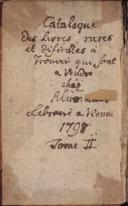 Catalogue
des Livres rares
et difficiles à
trouver qui sont
a Vendre
chéz
Libraire a Vienne
1798
Tome II.